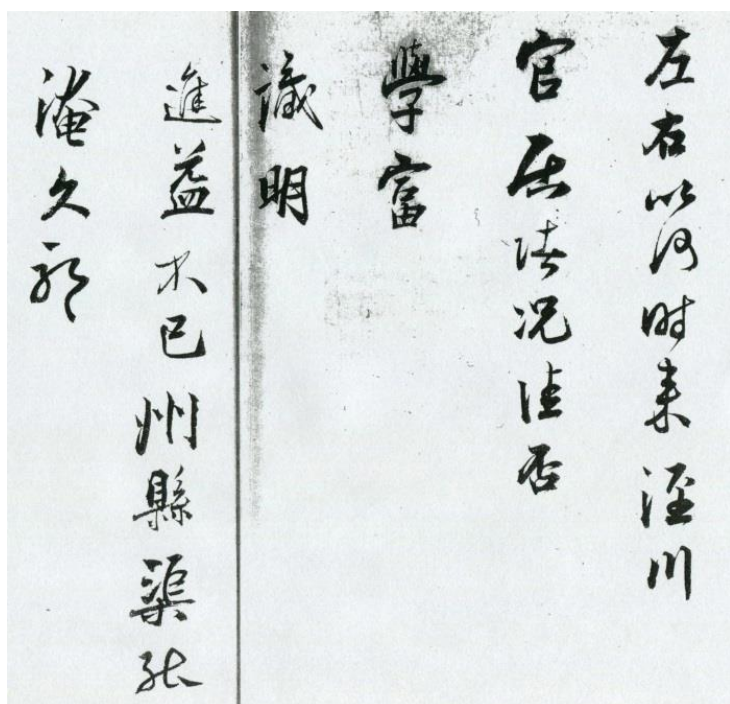 左右以何時來涇川
官居情況佳否
學富
識明
進益不已州縣渠能
淹久耶